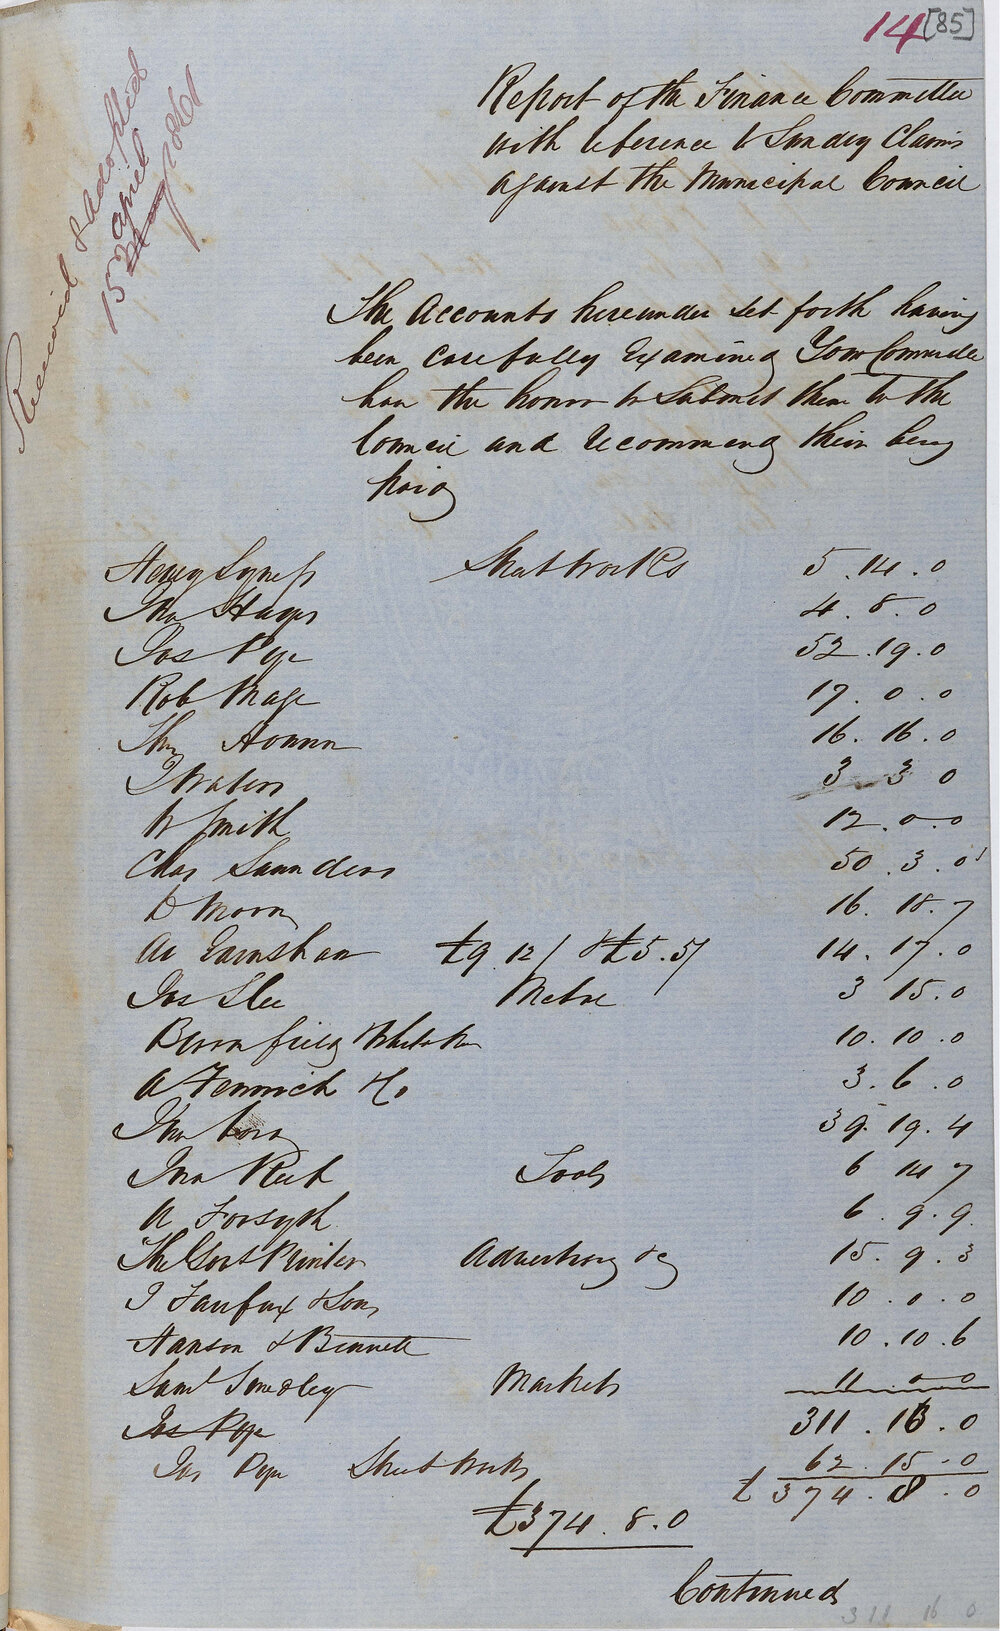 14 [85]
Received & adopted
15 April 1861
Report of the Finance Committee
with reference to Sundry Claims
against the Municipal Council
The Accounts hereunder set forth having
been carefully Examined Your Committee
have the honor to Submit them to the
Council and recommend their being
paid
Street Works 5.14.0
4.8.0
Jas Pope 52.19.0
Rob 17.0.0
16.16.0
3 3 0
W Smith 12.0.0
Chas Saunders 50.3.0
D Moon 16.18.7
Earnshaw £9.12/ & £5.5/ 14.17.0
Jas Slee 3 15.0
10.10.0
A Fenwick & Co 3.6.0
39.19.4
Tools 6 14 7
A Forsyth 6.9.9
The Govt Printer Advertising &c 15.9.3
J Fairfax & Sons 10.0.0
Hanson & Bennett 10.10.6
Saml Smedley Markets 11.0.0
Jas Pope 311.13.0
Jas Pope Street Works 62.15.0
£374.8.0
£374.8.0
Continued
311 16 0